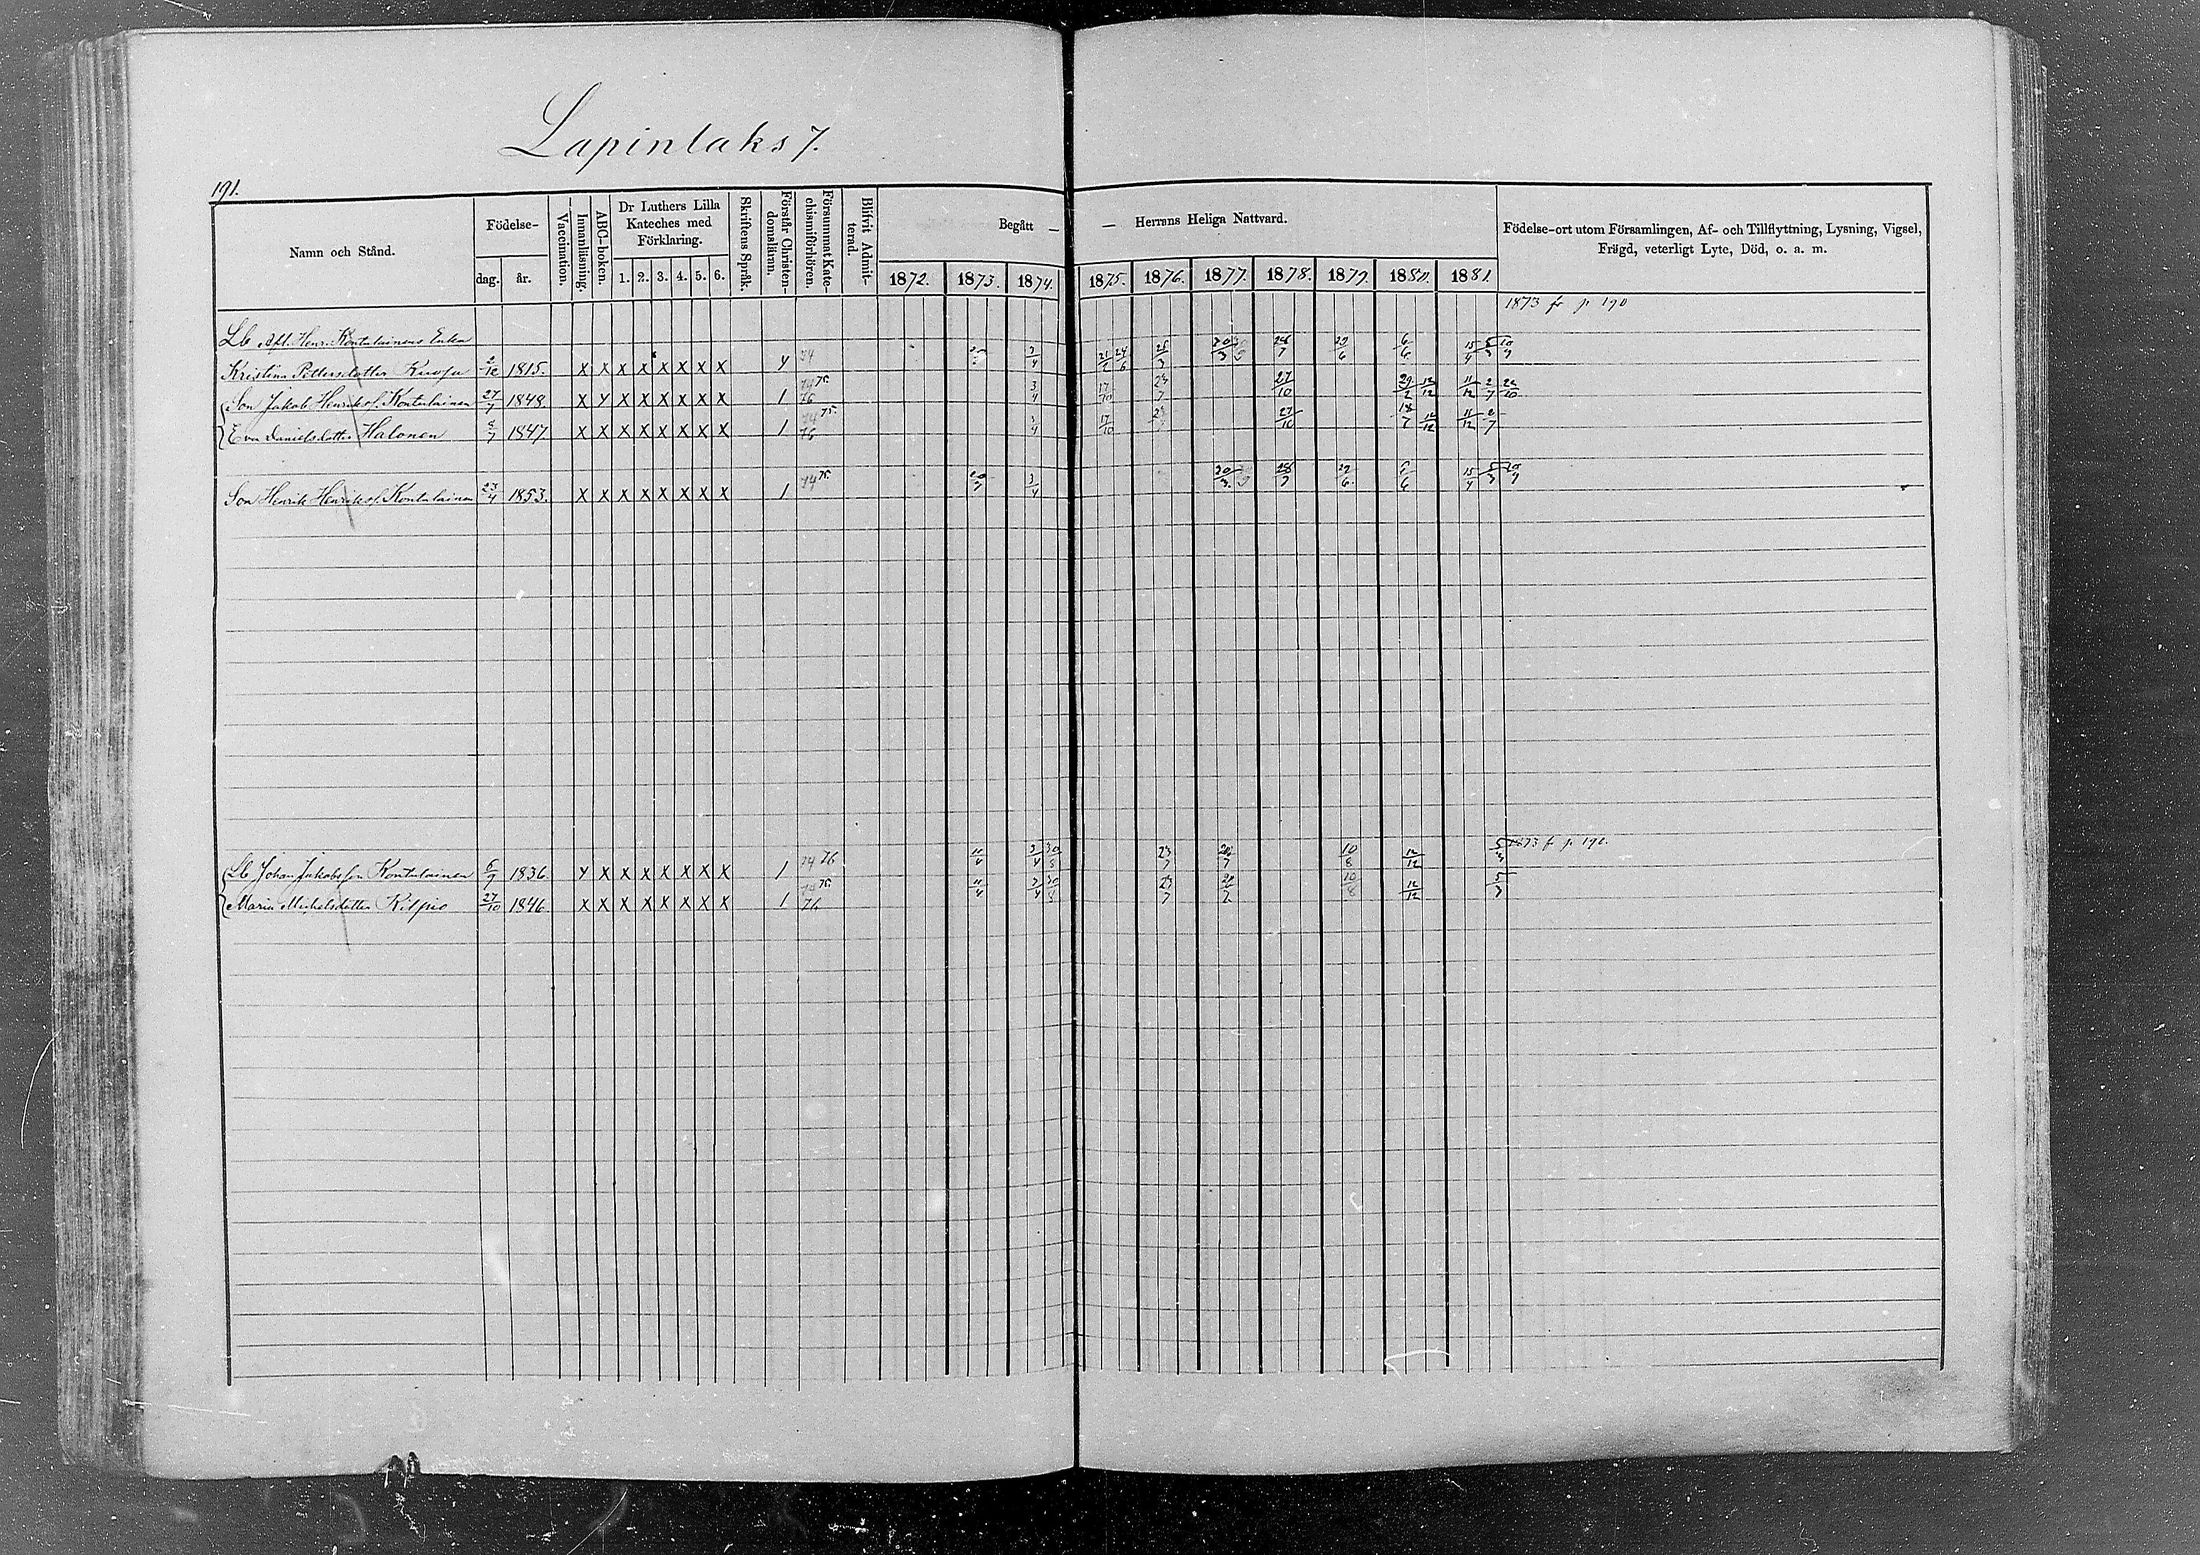 Lapinlaks 7.
191.
Namn och Stånd.
Födelse-
dag. år.
Vaccination.
Innanläsning.
ABC-boken.
Dr Luthers Lilla
Kateches med
Förklaring.
1. 2. 3. 4. 5. 6.
Skriftens Språk.
Förstår Christen-
domsläran.
Försummat Kate-
chismiförhören.
Blifvit Admit-
terad.
Begått — — Herrans Heliga Nattvard.
1872. 1873. 1874. 1875. 1876. 1877. 1878. 1879. 1880. 1881.
Födelse-ort utom Församlingen, Af- och Tillflyttning, Lysning, Vigsel,
Frägd, veterligt Lyte, Död, o. a. m.
1873 fr p 190
Lb Afl. Henr. Kontulainens Enka
Kristina Pettersdotter 1815. X X X X X X X X 74 3/4 21/2 24/6 29/6 6/6
Son Jakob Henriksf. Kontulainen 27/7 1848. X X X X X X X 1 74 75. 76 3/4 17/10 23/7 27/10 29/2 12/12 11/12 2/7
Eva Danielsdotter Halonen 1847. X X X X X X X X 1 74 75. 76 3/4 17/10 27/10 18/7 12/12 11/12 2/7
Son Henrik Henriksf. Kontulainen 23/4 1853. X X X X X X X X 1 74 75. 3/4 29/6
1873 fr p 190.
Lb Johan Jakobsson Kontulainen 6/7 1836. X X X X X X X 1 74 76 11/4 3/4 30/8 23/7 10/8 12/12
Maria Michelsdotter Kilpiö 27/10 1846. X X X X X X X X 1 74 75. 76 11/4 3/4 30/8 23/7 10/8 12/12